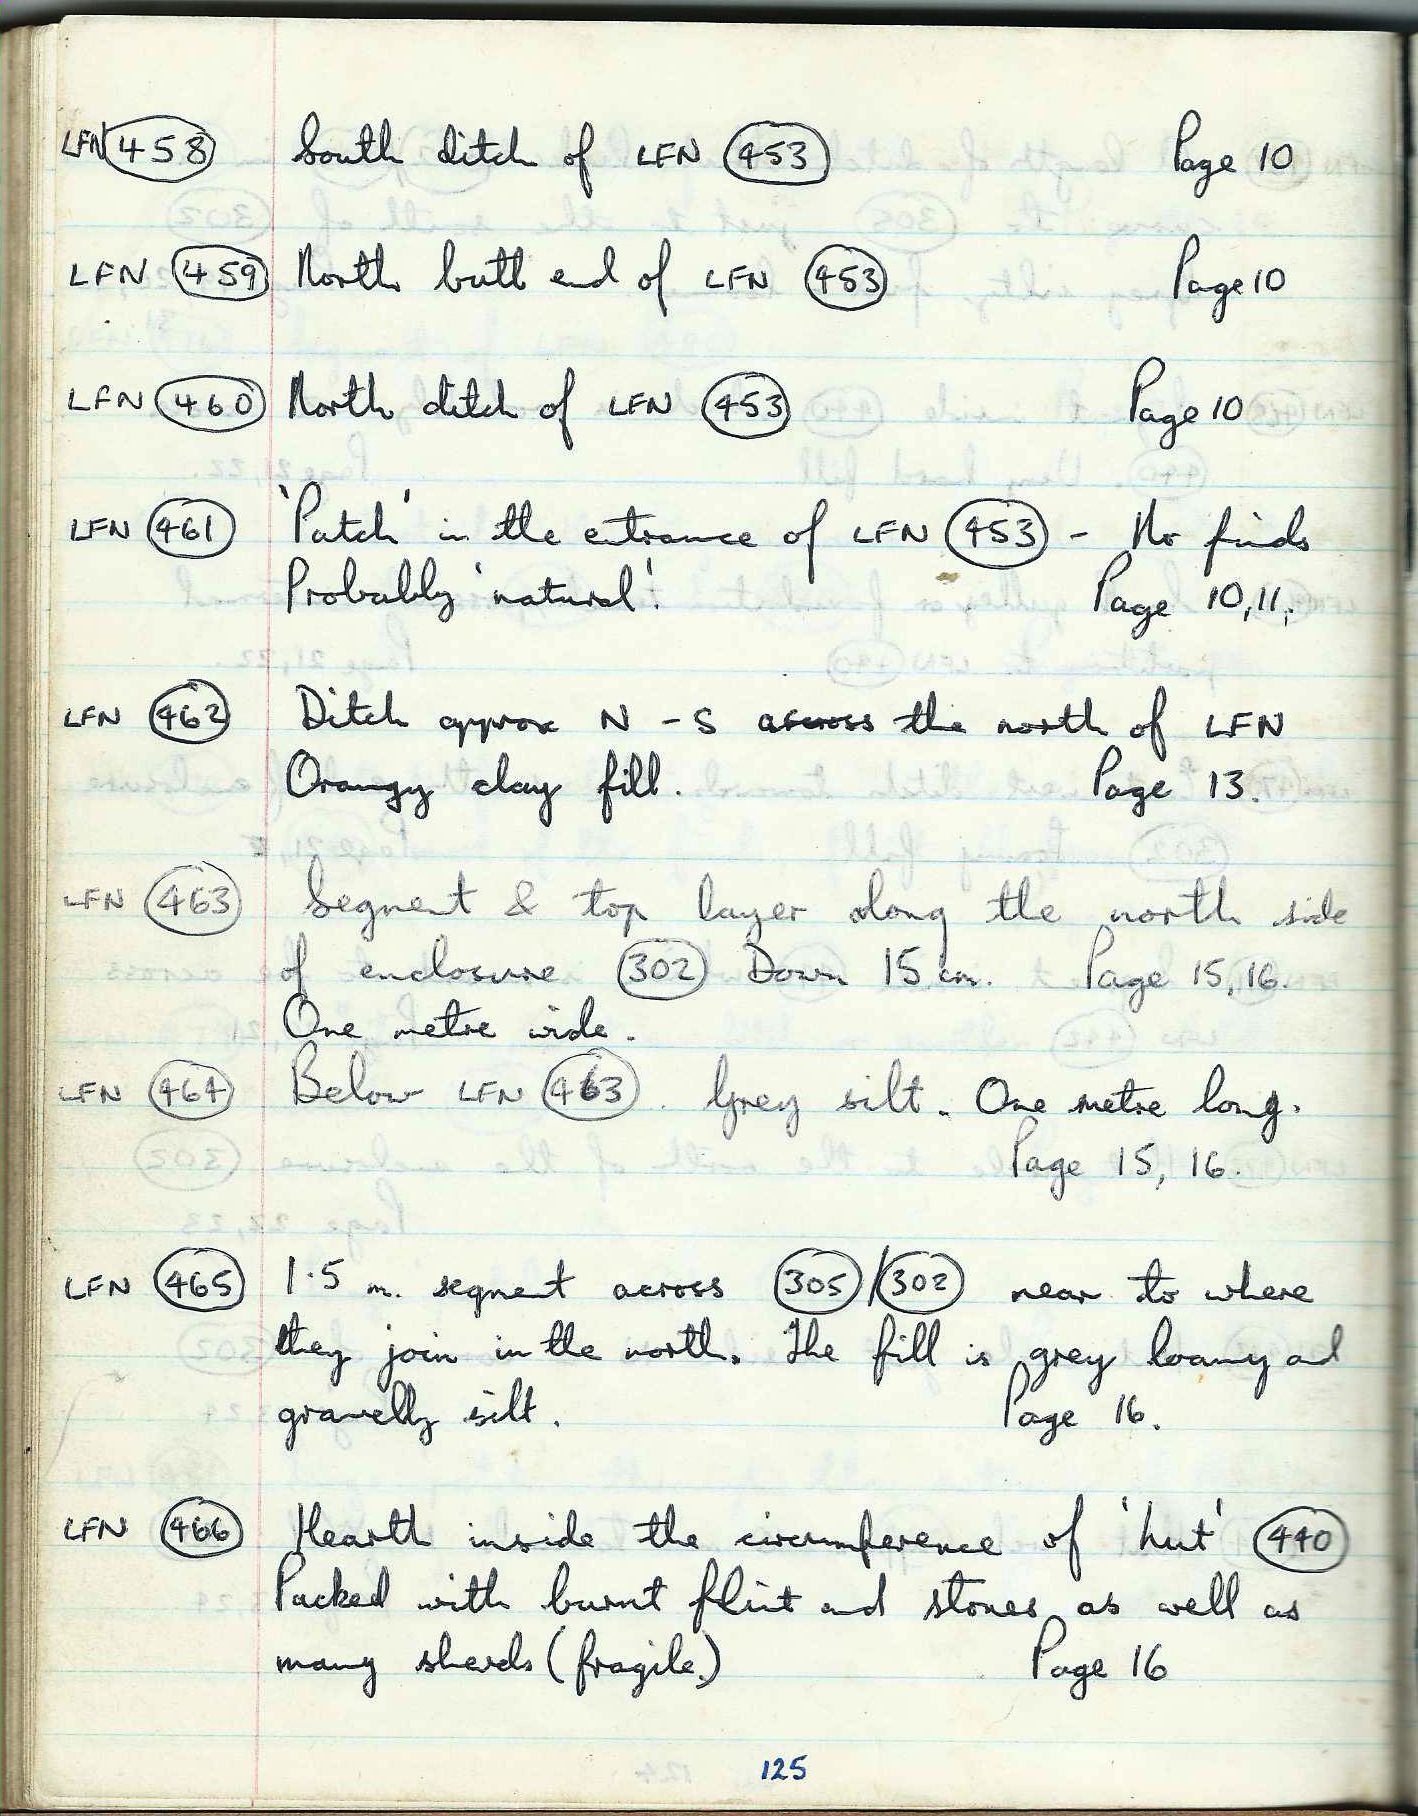 LFN 458 South ditch of LFN 453 Page 10
LFN 459 North butt end of LFN 453 Page 10
LFN 460 North ditch of LFN 453 Page 10
LFN 461 'Patch' in the entrance of LFN 453 - No finds
Probably 'natural'. Page 10,11.
LFN 462 Ditch approx N - S across the north of LFN
Orangy clay fill. Page 13.
LFN 463 Segment & top layer along the north side
of enclosure 302 Down 15 cm. Page 15,16.
One metre wide.
LFN 464 Below LFN 463. Grey silt. One metre long.
Page 15, 16.
LFN 465 1.5 m. segment across 305/302 near to where
they join in the north. The fill is grey loamy and
gravelly silt. Page 16.
LFN 466 Hearth inside the circumference of 'hut' 440
Packed with burnt flint and stones as well as
many sherds (fragile.) Page 16
125